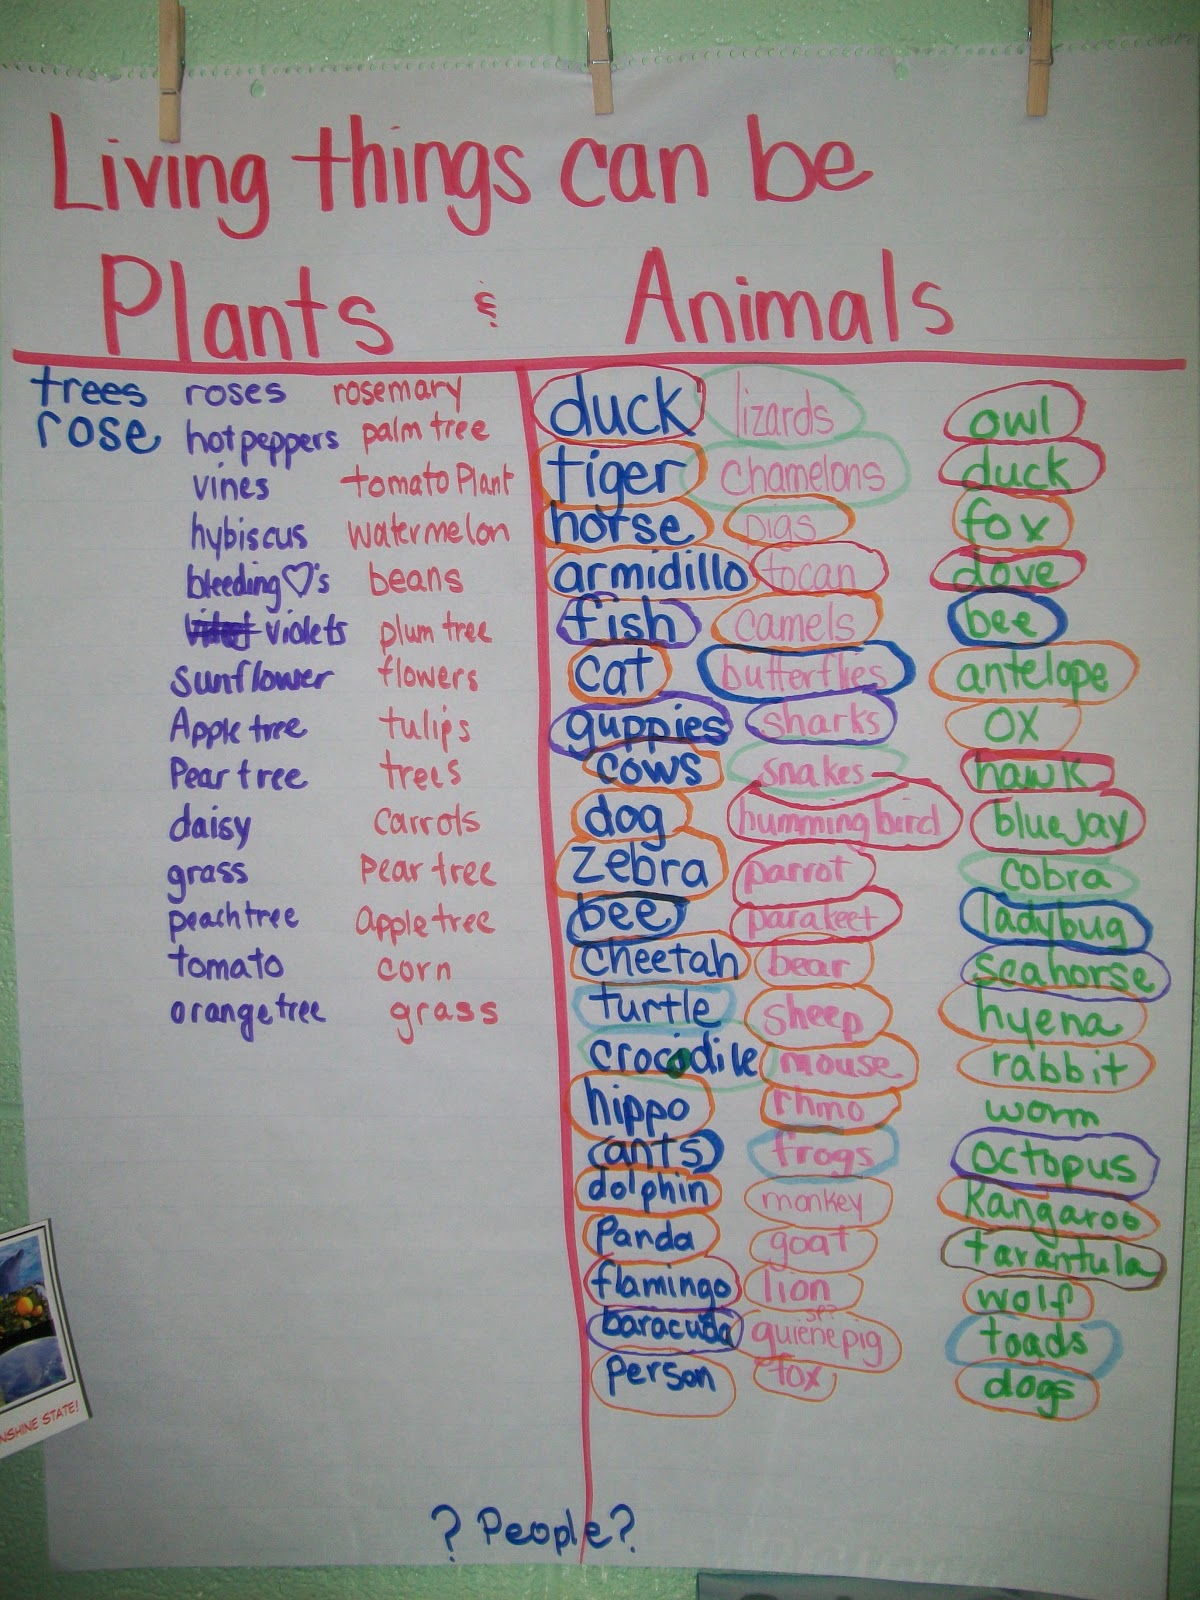 Living things can be
Plants & Animals
trees
rose
roses
hot peppers
vines
hybiscus
bleeding♡'s
violets
sunflower
Apple tree
Pear tree
daisy
grass
peach tree
tomato
orange tree
rosemary
palm tree
tomato Plant
watermelon
beans
plum tree
flowers
tulips
trees
carrots
Pear tree
apple tree
corn
grass
duck
tiger
horse
armidillo
fish
cat
guppies
cows
dog
zebra
bee
cheetah
turtle
crocodile
hippo
ants
dolphin
Panda
flamingo
baracuda
person
lizards
chamelons
pigs
tocan
camels
butterflies
sharks
snakes
humming bird
parrot
parakeet
bear
sheep
mouse
rhino
frogs
monkey
goat
lion
sp?
quienepig
fox
owl
duck
fox
dove
bee
antelope
ox
hawk
blue jay
cobra
ladybug
seahorse
hyena
rabbit
worm
octopus
Kangaroo
tarantula
wolf
toads
dogs
? People?
NSHINE STATE!